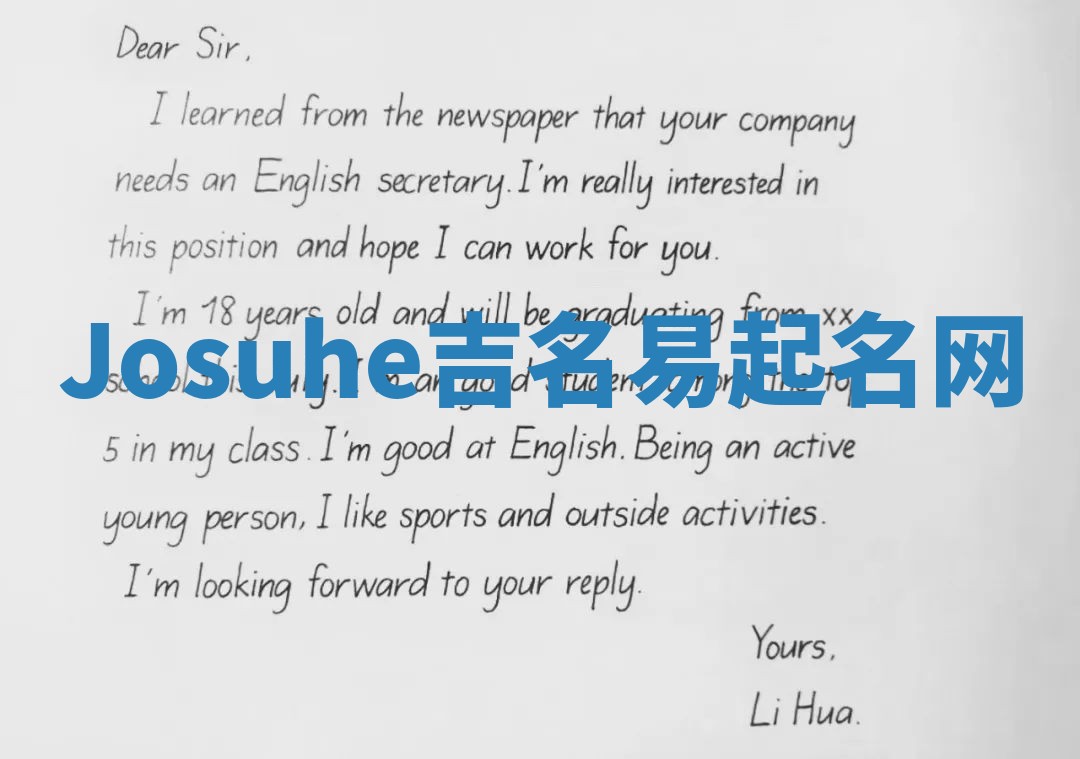 Dear Sir,
I learned from the newspaper that your company
needs an English secretary. I'm really interested in
this position and hope I can work for you.
I'm 18 years old and will be graduating from xx
Josuhe吉名易起名网
school this July. I'm a good student among the top
5 in my class. I'm good at English. Being an active
young person, I like sports and outside activities.
I'm looking forward to your reply.
Yours,
Li Hua.